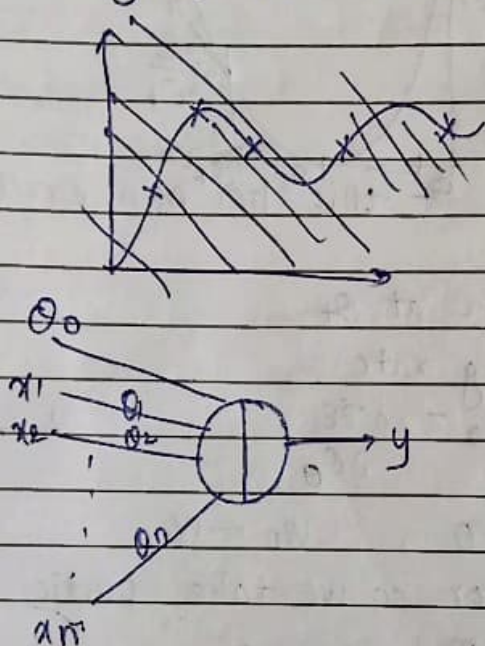 θ0
x1 θ1
x2 θ2
θn
xn
y